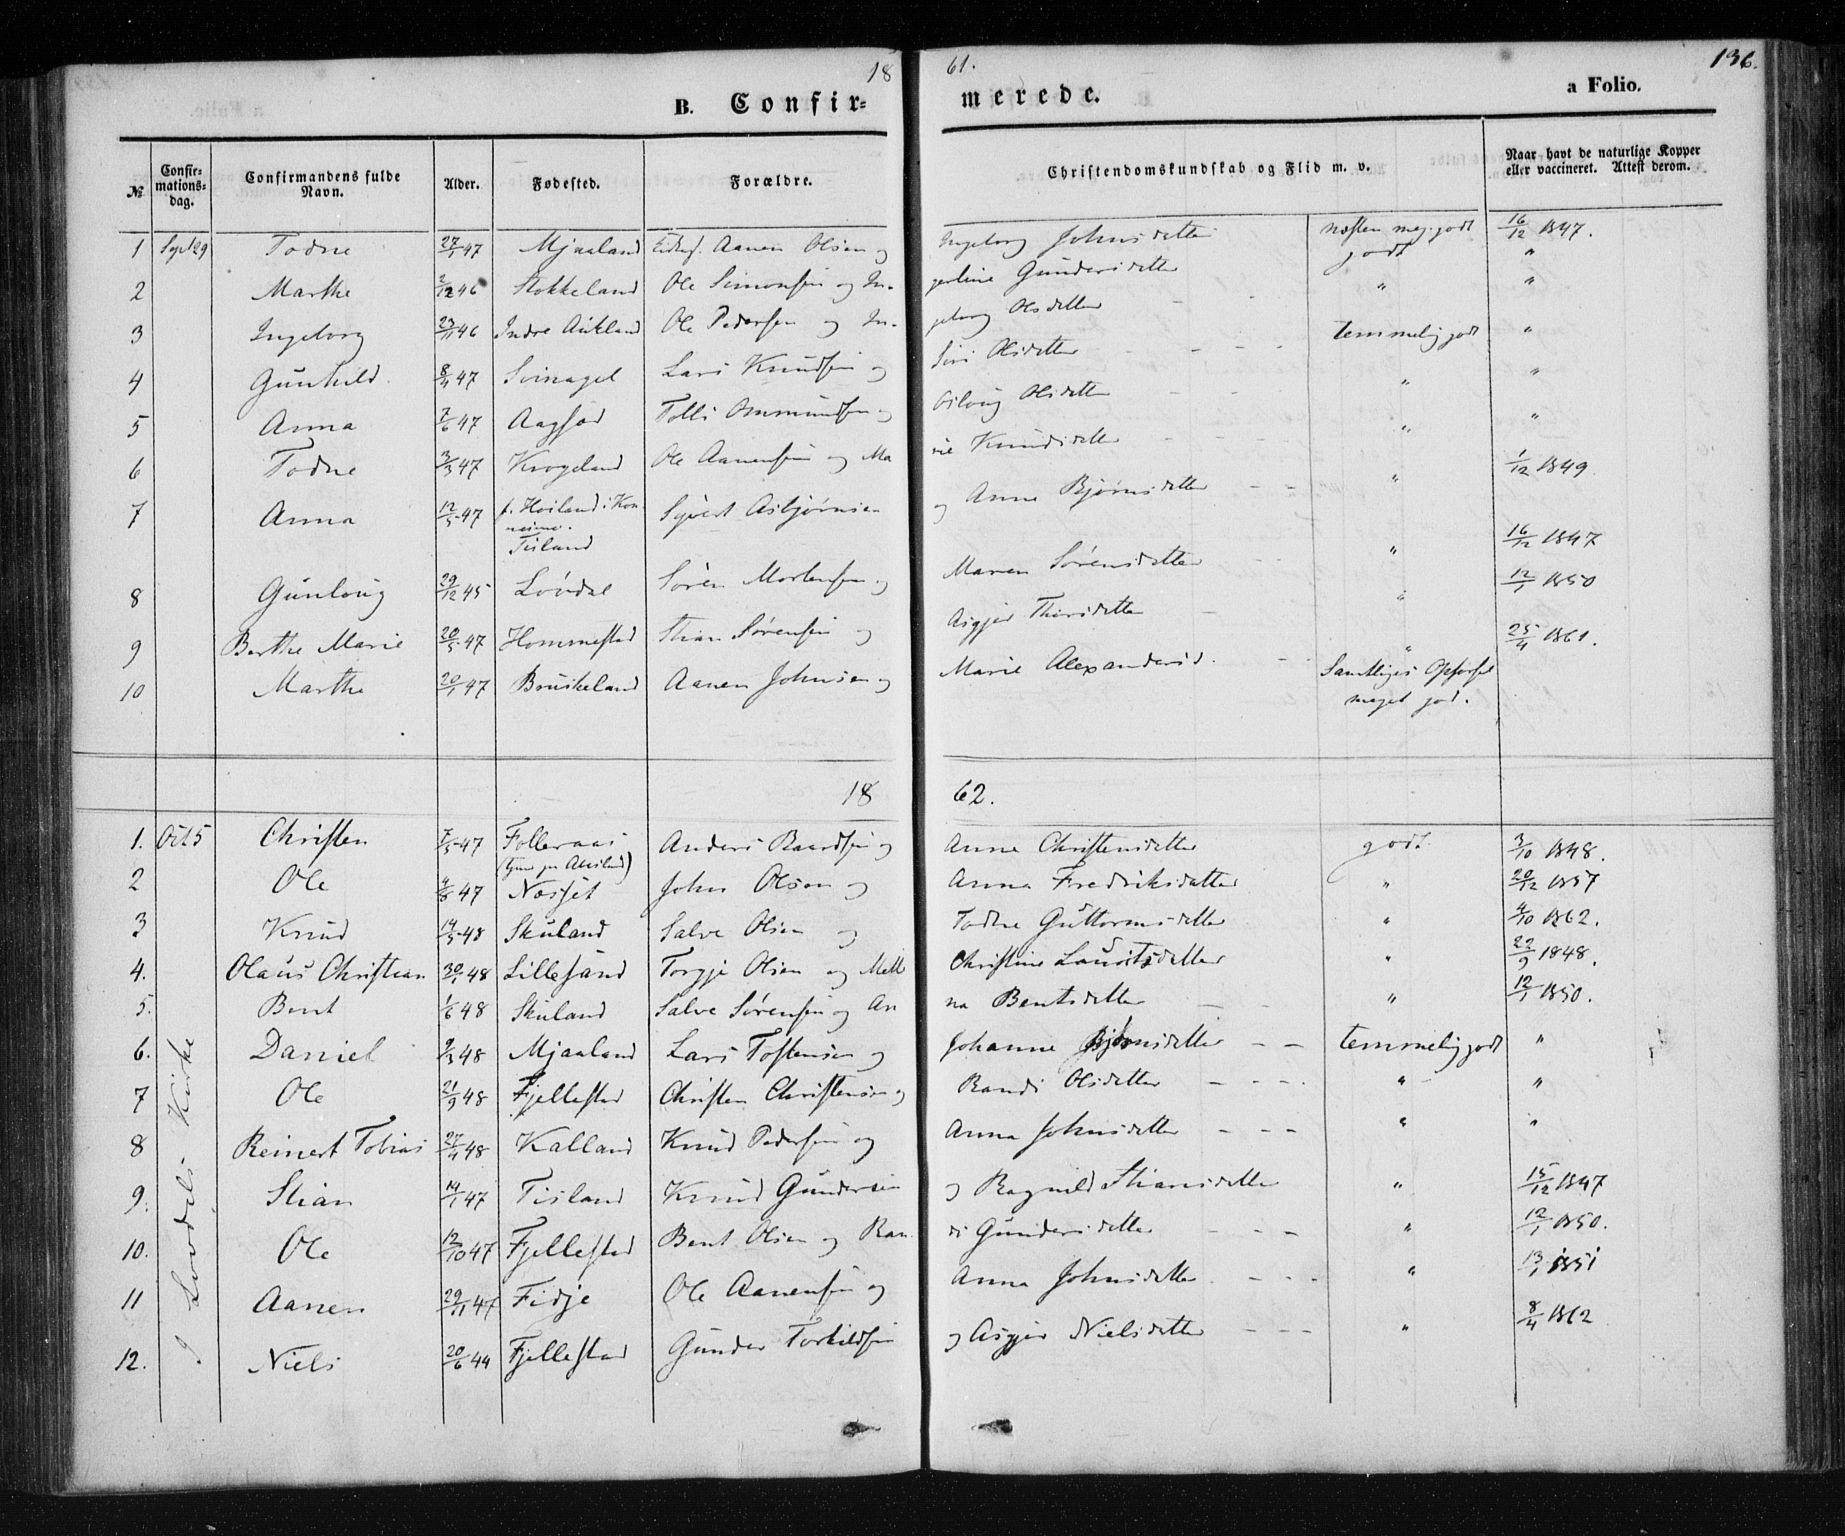 18 61. 136.
B. Confirmerede. a Folio.
№ Confirmationsdag. Confirmandens fulde Navn. Alder. Fødested. Forældre. Christendomskundskab og Flid m. v. Naar havt de naturlige Kopper eller vaccineret. Attest derom.
1 Sept 29 Todne 27/1 47 Mjaaland Aanen Olsen og Ingeborg Johnsdatter næsten meg. godt 16/12 1847.
2 Marthe 3/12 46 Stokkeland Ole Simonsen og Ingerline Gundersdatter godt "
3 Ingeborg 23/11 46 Indre Aukland Ole Pedersen og Ingeborg Olsdatter " "
4 Gunhild 8/4 47 Svinagel Lars Knudsen og Siri Olsdatter temmelig godt "
5 Anna 7/6 47 Aagsod Tolli Ommundsen og Oiloug Olsdatter " "
6 Todne 3/3 47 Krogeland Ole Aanensen og Marie Knudsdatter " "
7 Anna 12/5 47 f. Høiland i Kon- Syvert Asbjørnsen og Anne Bjørnsdatter " 1/12 1849.
Tisland
8 Gunloug 29/12 45 Lovdal Søren Mortensen og Maren Sørensdatter " 16/12 1847
9 Berthe Marie 20/5 47 Hommestad Stian Sørensen og Asgjer Thorsdatter " 12/1 1850
10 Marthe 20/1 47 Bruskeland Aanen Johnsen og Marie Alexandersd. " 25/4 1861.
Samtliges Opførsel
meget god.
18 62.
1. Oct 5 Christen 7/5 47 Folleraas Anders Baardsen og Anne Christensdatter godt 3/10 1848.
2 Ole 4/6 47 Nosjet John Olsen og Anna Fredriksdatter " 20/12 1857
3 Knud 14/5 48 Skuland Salve Olsen og Todne Guttormsdatter " 4/10 1862.
4. Olaus Christian 30/1 48 Lillesand Torgje Olsen og Mette Christine Lauritsdatter " 22/9 1848.
5. Bent 1/6 48 Skuland Salve Sørensen og Anna Bentsdatter " 12/1 1850.
6. Daniel 9/3 48 Mjaaland Lars Tostensen og Johanne Bjørnsdatter temmelig godt "
7 Ole 21/9 48 Fjellestad Christen Christensen og Randi Olsdatter " "
8 Reinert Tobias 27/4 48 Kalland Knud Pedersen og Anna Johnsdatter " "
9. Stian 14/1 47 Tisland Knud Gundersen og Ragnild Stiansdatter " 15/12 1847
10. Ole 12/10 47 Fjellestad Bent Olsen og Randi Gundersdatter " 12/1 1850.
11 Aanen 29/11 47 Fidje Ole Aanensen og Anna Johnsdatter " 13/1 1851
12. Niels 20/6 44 Fjellestad Gunder Torkildsen og Asgjer Nielsdatter " 8/4 1862
I Lovdals Kirke